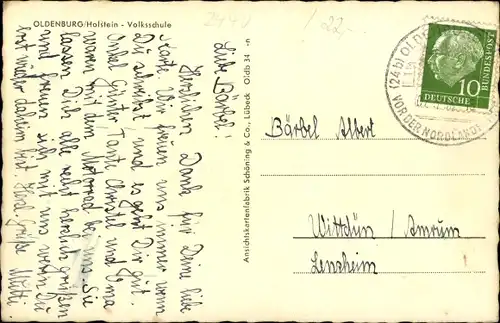 OLDENBURG/Holstein - Volksschule
22,-
Liebe Bärbel!
Herzlichen Dank für Deine liebe
Karte. Wir freuen uns immer wenn
Du schreibst, und es geht Dir gut.
Onkel Günter, Tante Christel und Oma
waren mit dem Motorrad bei uns. Sie
lassen Dich alle recht herzlich grüßen
und freuen sich mit uns wenn Du
erst wieder daheim bist. Herzl. Grüße Mutti
Ansichtskartenfabrik Schöning & Co., Lübeck Oldb 34 -n
(24b) OLD
VOR DER NORDLAND
10
DEUTSCHE
BUNDESPOST
Bärbel Albert
Wittdün / Amrum
Lenzheim